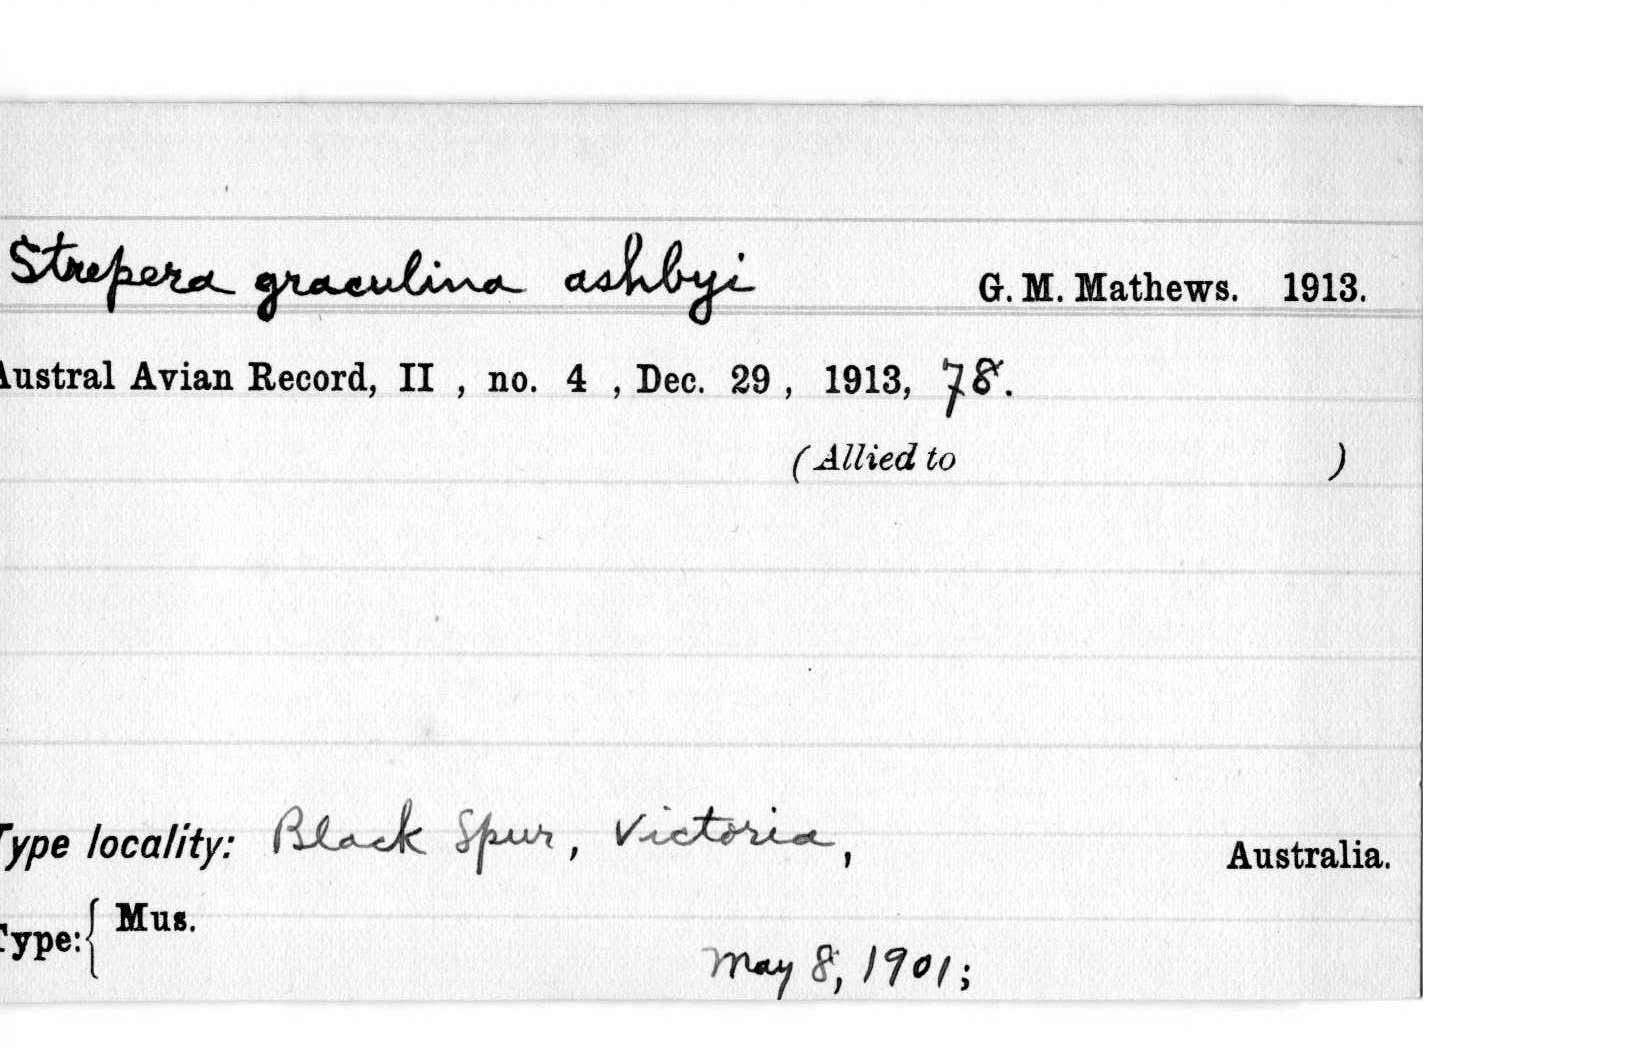 Strepera graculina ashbyi G. M. Mathews. 1913.
Austral Avian Record, II , no. 4 , Dec. 29 , 1913, 78.
(Allied to )
Type locality: Black Spur, Victoria, Australia.
Type: { Mus.
May 8, 1901;